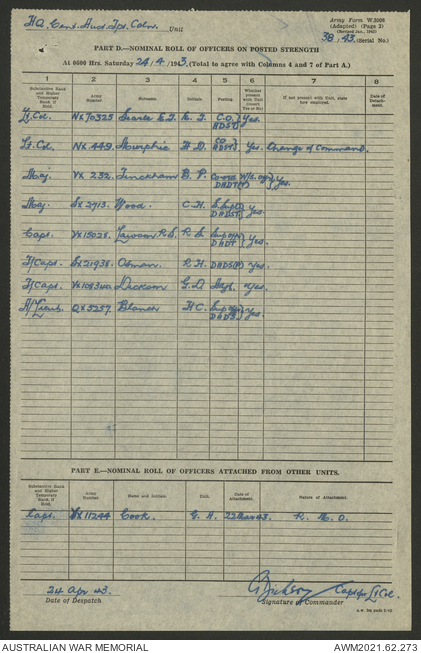 HQ. Cent. Aust. Tpt. Coln. Unit
Army Form W.3008
(Adapted) (Page 2)
(Revised Jan., 1943)
38/43 (Serial No.)
PART D.—NOMINAL ROLL OF OFFICERS ON POSTED STRENGTH
At 0600 Hrs. Saturday 24/4/1943, (Total to agree with Columns 4 and 7 of Part A.)
1 2 3 4 5 6 7 8
Substantive Rank and Higher Temporary Rank, if Held. Army Number. Surname. Initials. Posting. Whether present with Unit (Insert Yes or No) If not present with Unit, state how employed. Date of Detach-ment.
Lt. Col. NX70325 Searle E.J. E. J. C.O. ADST Yes.
Lt. Col. NX 449. H. D. CO ADST Yes. Change of Command.
Maj. VX 232. B. P. DADT(T) Yes.
Maj. SX 2713. Wood. C. H. DADST Yes.
Capt. VX15028. R.S. R. S. DADT Yes.
T/Capt. SX21938. Osman. R. H. DADS(P) Yes.
T/Capt. Dickson G. D. Adjt. Yes.
A/Lieut. QX5257. H C. Yes.
PART E.—NOMINAL ROLL OF OFFICERS ATTACHED FROM OTHER UNITS.
Substantive Rank and Higher Temporary Rank, if Held. Army Number. Name and Initials. Unit. Date of Attachment. Nature of Attachment.
Capt. VX11244 Cook. G. H. 22 Mar 43. R. M. O.
24 Apr 43.
Date of Despatch
G Dickson Capt for Lt Col.
Signature of Commander
AUSTRALIAN WAR MEMORIAL
AWM2021.62.273